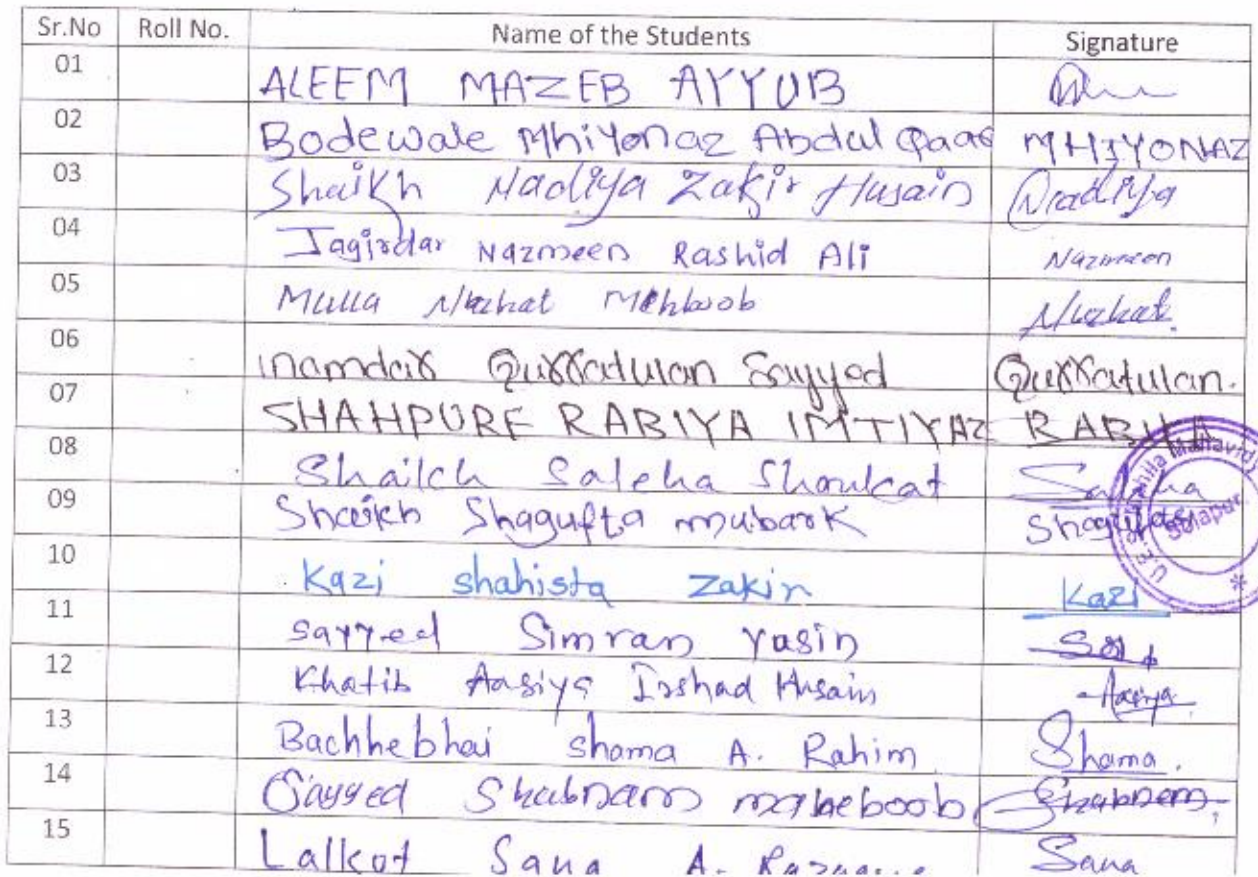 Sr.No Roll No. Name of the Students Signature
01 ALEEM MAZEB AYYUB
02 Bodewale Mhiyonaz Abdul MHIYONAZ
03 Shaikh Nadiya Zakir Husain Nadiya
04 Jagirdar Nazmeen Rashid Ali Nazmeen
05 Mulla Nuzhat Mehboob Nuzhat.
06 inamdar Qurratulan Sayyed Qurratulan.
07 SHAHPURE RABIYA IMTIYAZ RABIYA
08 Shaikh Saleha Shoukat Saleha
09 Shaikh Shagufta mubark Shagufta
10 Kazi shahista Zakir Kazi
11 sayyed Simran Yasin
12 Khatib Aasiya Irshad Husain Aasiya
13 Bachhebhai shama A. Rahim Shama.
14 Sayyed Shabnam maheboob Shabnam.
15 Lalkot Sana A. Sana
Solapur